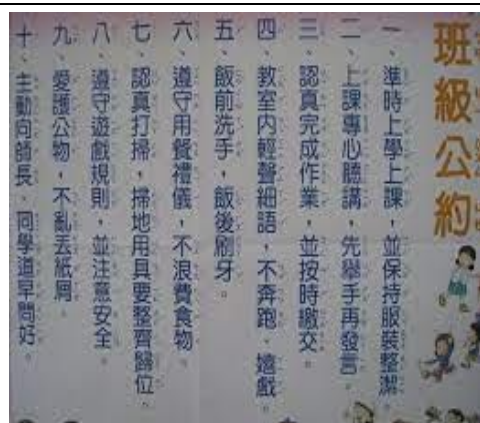 班級公約
一、準時上學上課，並保持服裝整潔。
二、上課專心聽講，先舉手再發言。
三、認真完成作業，並按時繳交。
四、教室內輕聲細語，不奔跑、嬉戲。
五、飯前洗手，飯後刷牙。
六、遵守用餐禮儀，不浪費食物。
七、認真打掃，掃地用具要整齊歸位。
八、遵守遊戲規則，並注意安全。
九、愛護公物，不亂丟紙屑。
十、主動向師長、同學道早問好。